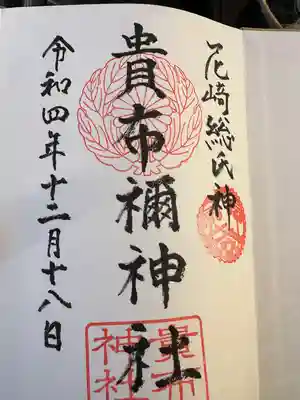 尼崎総氏神
貴布禰神社
貴布
神社
令和四年十二月十八日